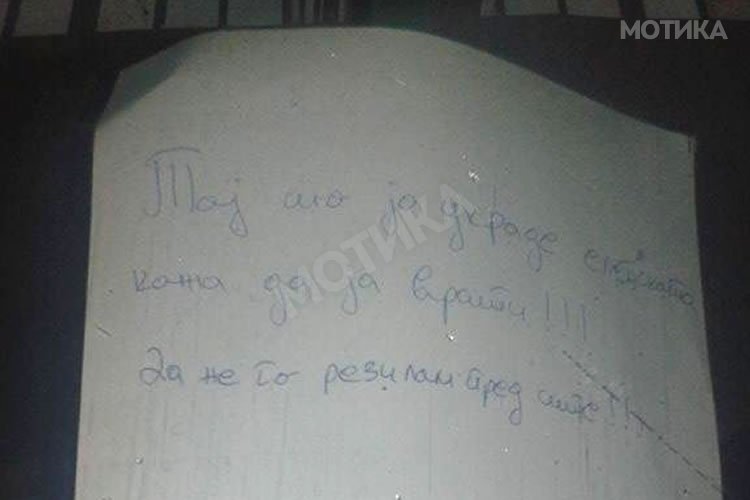 МОТИКА
Тој што ја украде
МОТИКА
кожа да ја врати!!!
Да не го резилам пред сите!!!